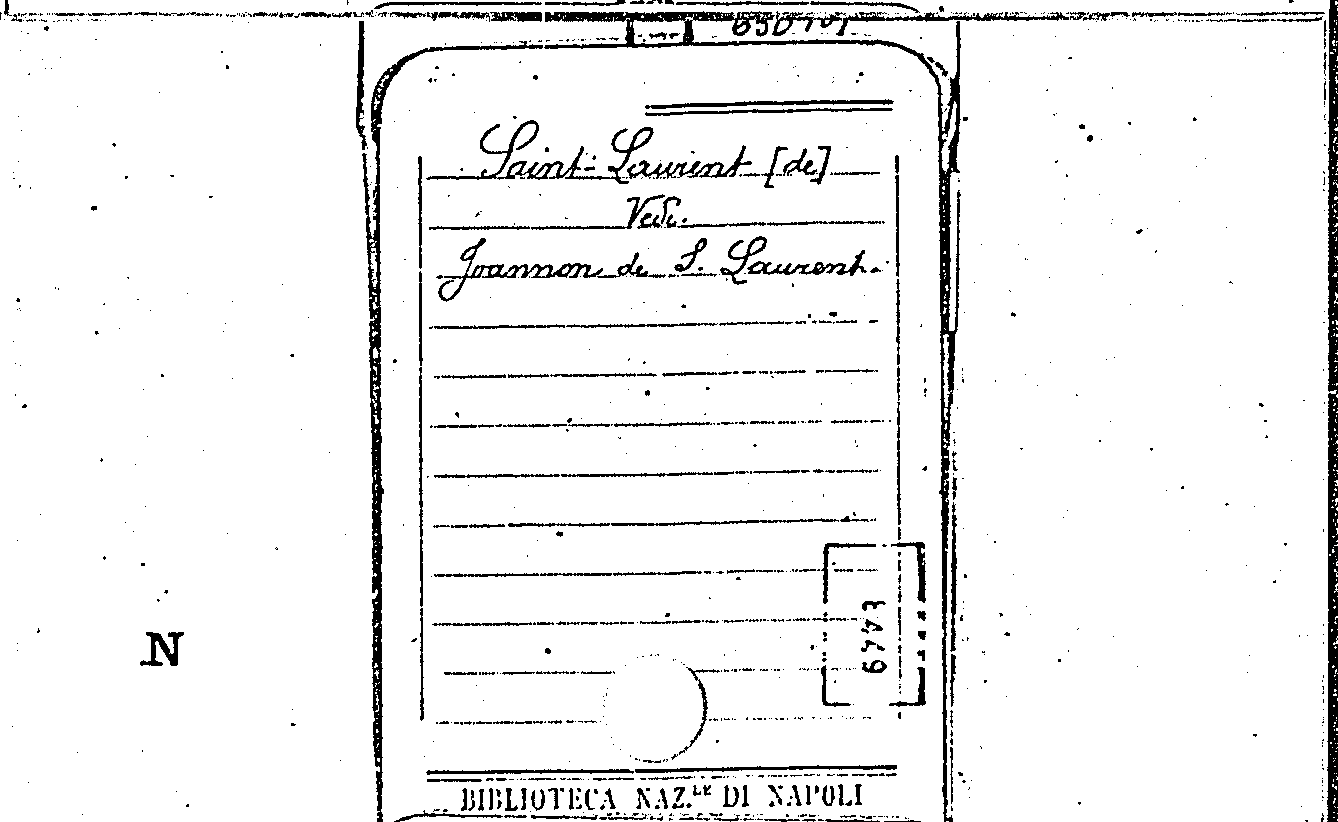 Saint-Laurent [de]
Vedi.
Joannon de S. Laurent.
N
BIBLIOTECA NAZ.LE DI NAPOLI